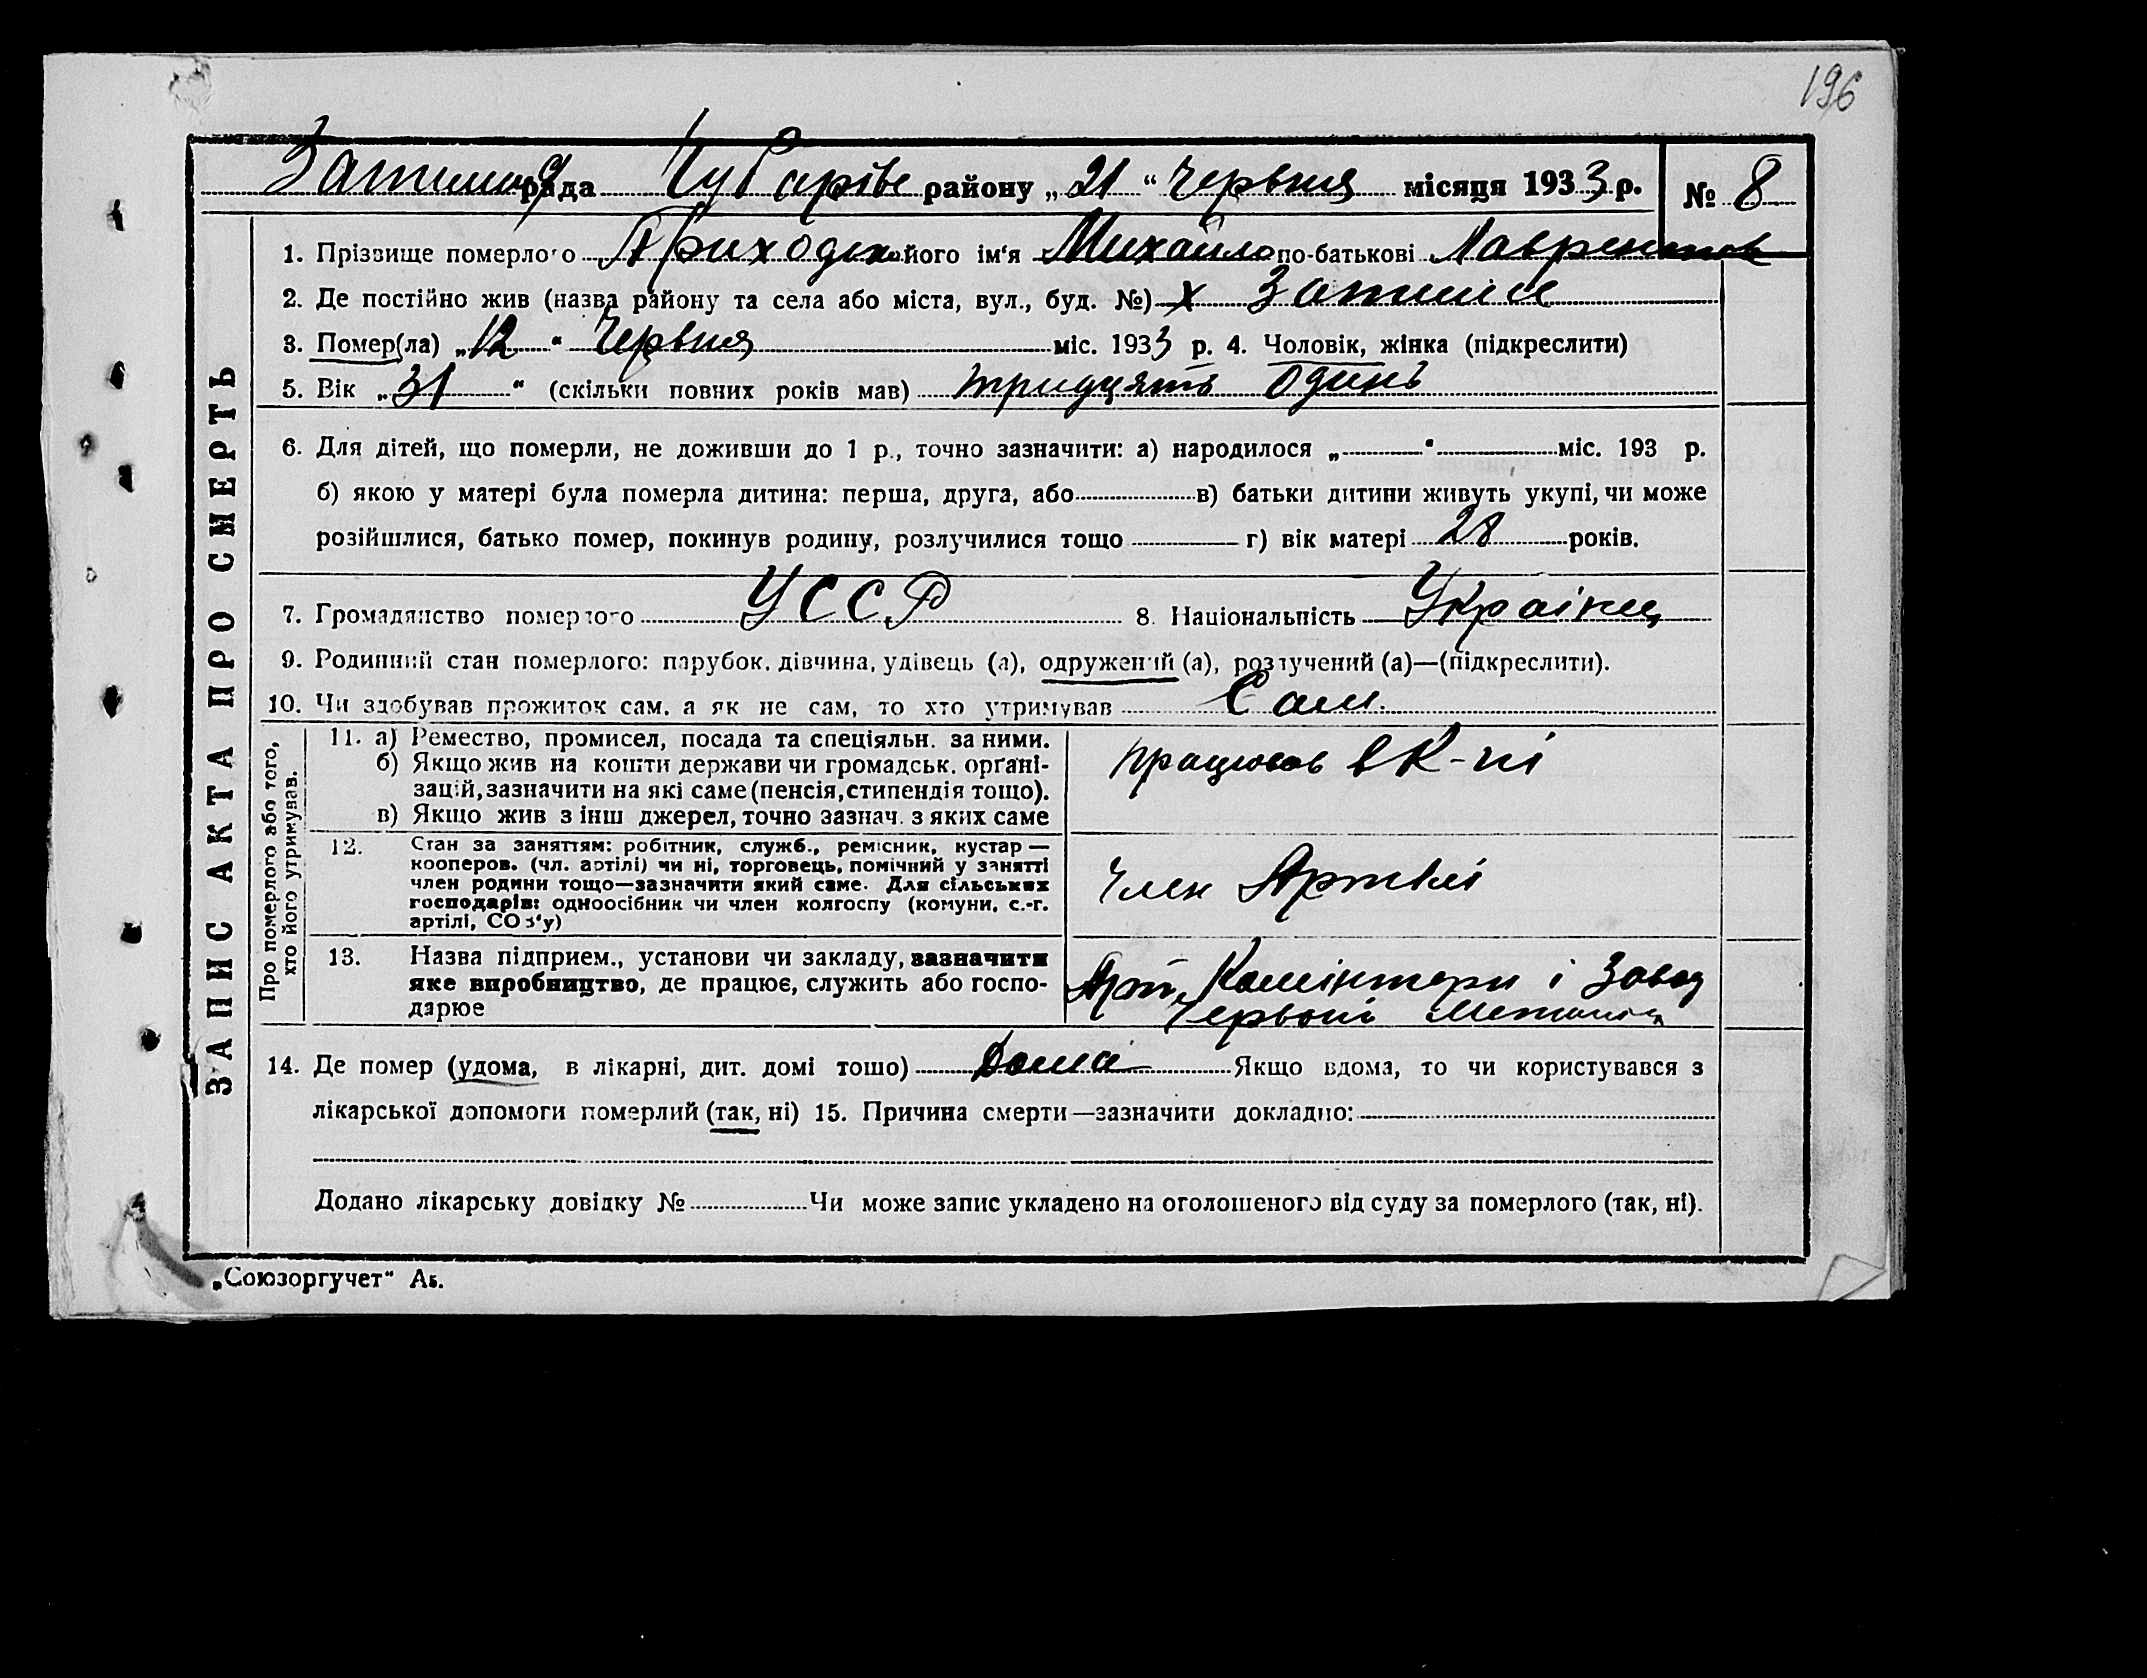 196
Затишн рада Чубарівс району „21“ Червня місяця 1933 р. № 8
ЗАПИС АКТА ПРО СМЕРТЬ
1. Прізвище померлого Приходько його ім'я Михайло по-батькові Лаврентов
2. Де постійно жив (назва району та села або міста, вул., буд. №) х Затишя
3. Помер(ла) „12“ Червня міс. 1933 р. 4. Чоловік, жінка (підкреслити)
5. Вік „31“ (скільки повних років мав) тридцять одинь
6. Для дітей, що померли, не доживши до 1 р., точно зазначити: а) народилося „ “ міс. 193 р.
б) якою у матері була померла дитина: перша, друга, або в) батьки дитини живуть укупі, чи може
розійшлися, батько помер, покинув родину, розлучилися тощо г) вік матері 28 років.
7. Громадянство померлого УССР 8. Національність Українц
9. Родинний стан померлого: парубок, дівчина, удівець (а), одружений (а), розлучений (а)—(підкреслити).
10. Чи здобував прожиток сам, а як не сам, то хто утримував Сам.
Про померлого або того, хто його утримував.
11. а) Ремество, промисел, посада та спеціяльн. за ними.
б) Якщо жив на кошти держави чи громадськ. орґані-
зацій, зазначити на які саме (пенсія, стипендія тощо).
в) Якщо жив з інш джерел, точно зазнач. з яких саме
працював в К-пі
12. Стан за заняттям: робітник, служб., ремісник, кустар —
кооперов. (чл. артілі) чи ні, торговець, помічний у занятті
член родини тощо—зазначити який саме. Для сільських
господарів: одноосібник чи член колгоспу (комуни, с.-г.
артілі, СОЗ'у)
Член Артілі
13. Назва підприєм., установи чи закладу, зазначити
яке виробництво, де працює, служить або госпо-
дарює
Арт. Комінтерн і Завод
Червоні
14. Де помер (удома, в лікарні, дит. домі тощо) Дома Якщо вдома, то чи користувався з
лікарської допомоги померлий (так, ні) 15. Причина смерти—зазначити докладно:
Додано лікарську довідку № Чи може запис укладено на оголошеного від суду за померлого (так, ні).
„Союзоргучет“ Аб.